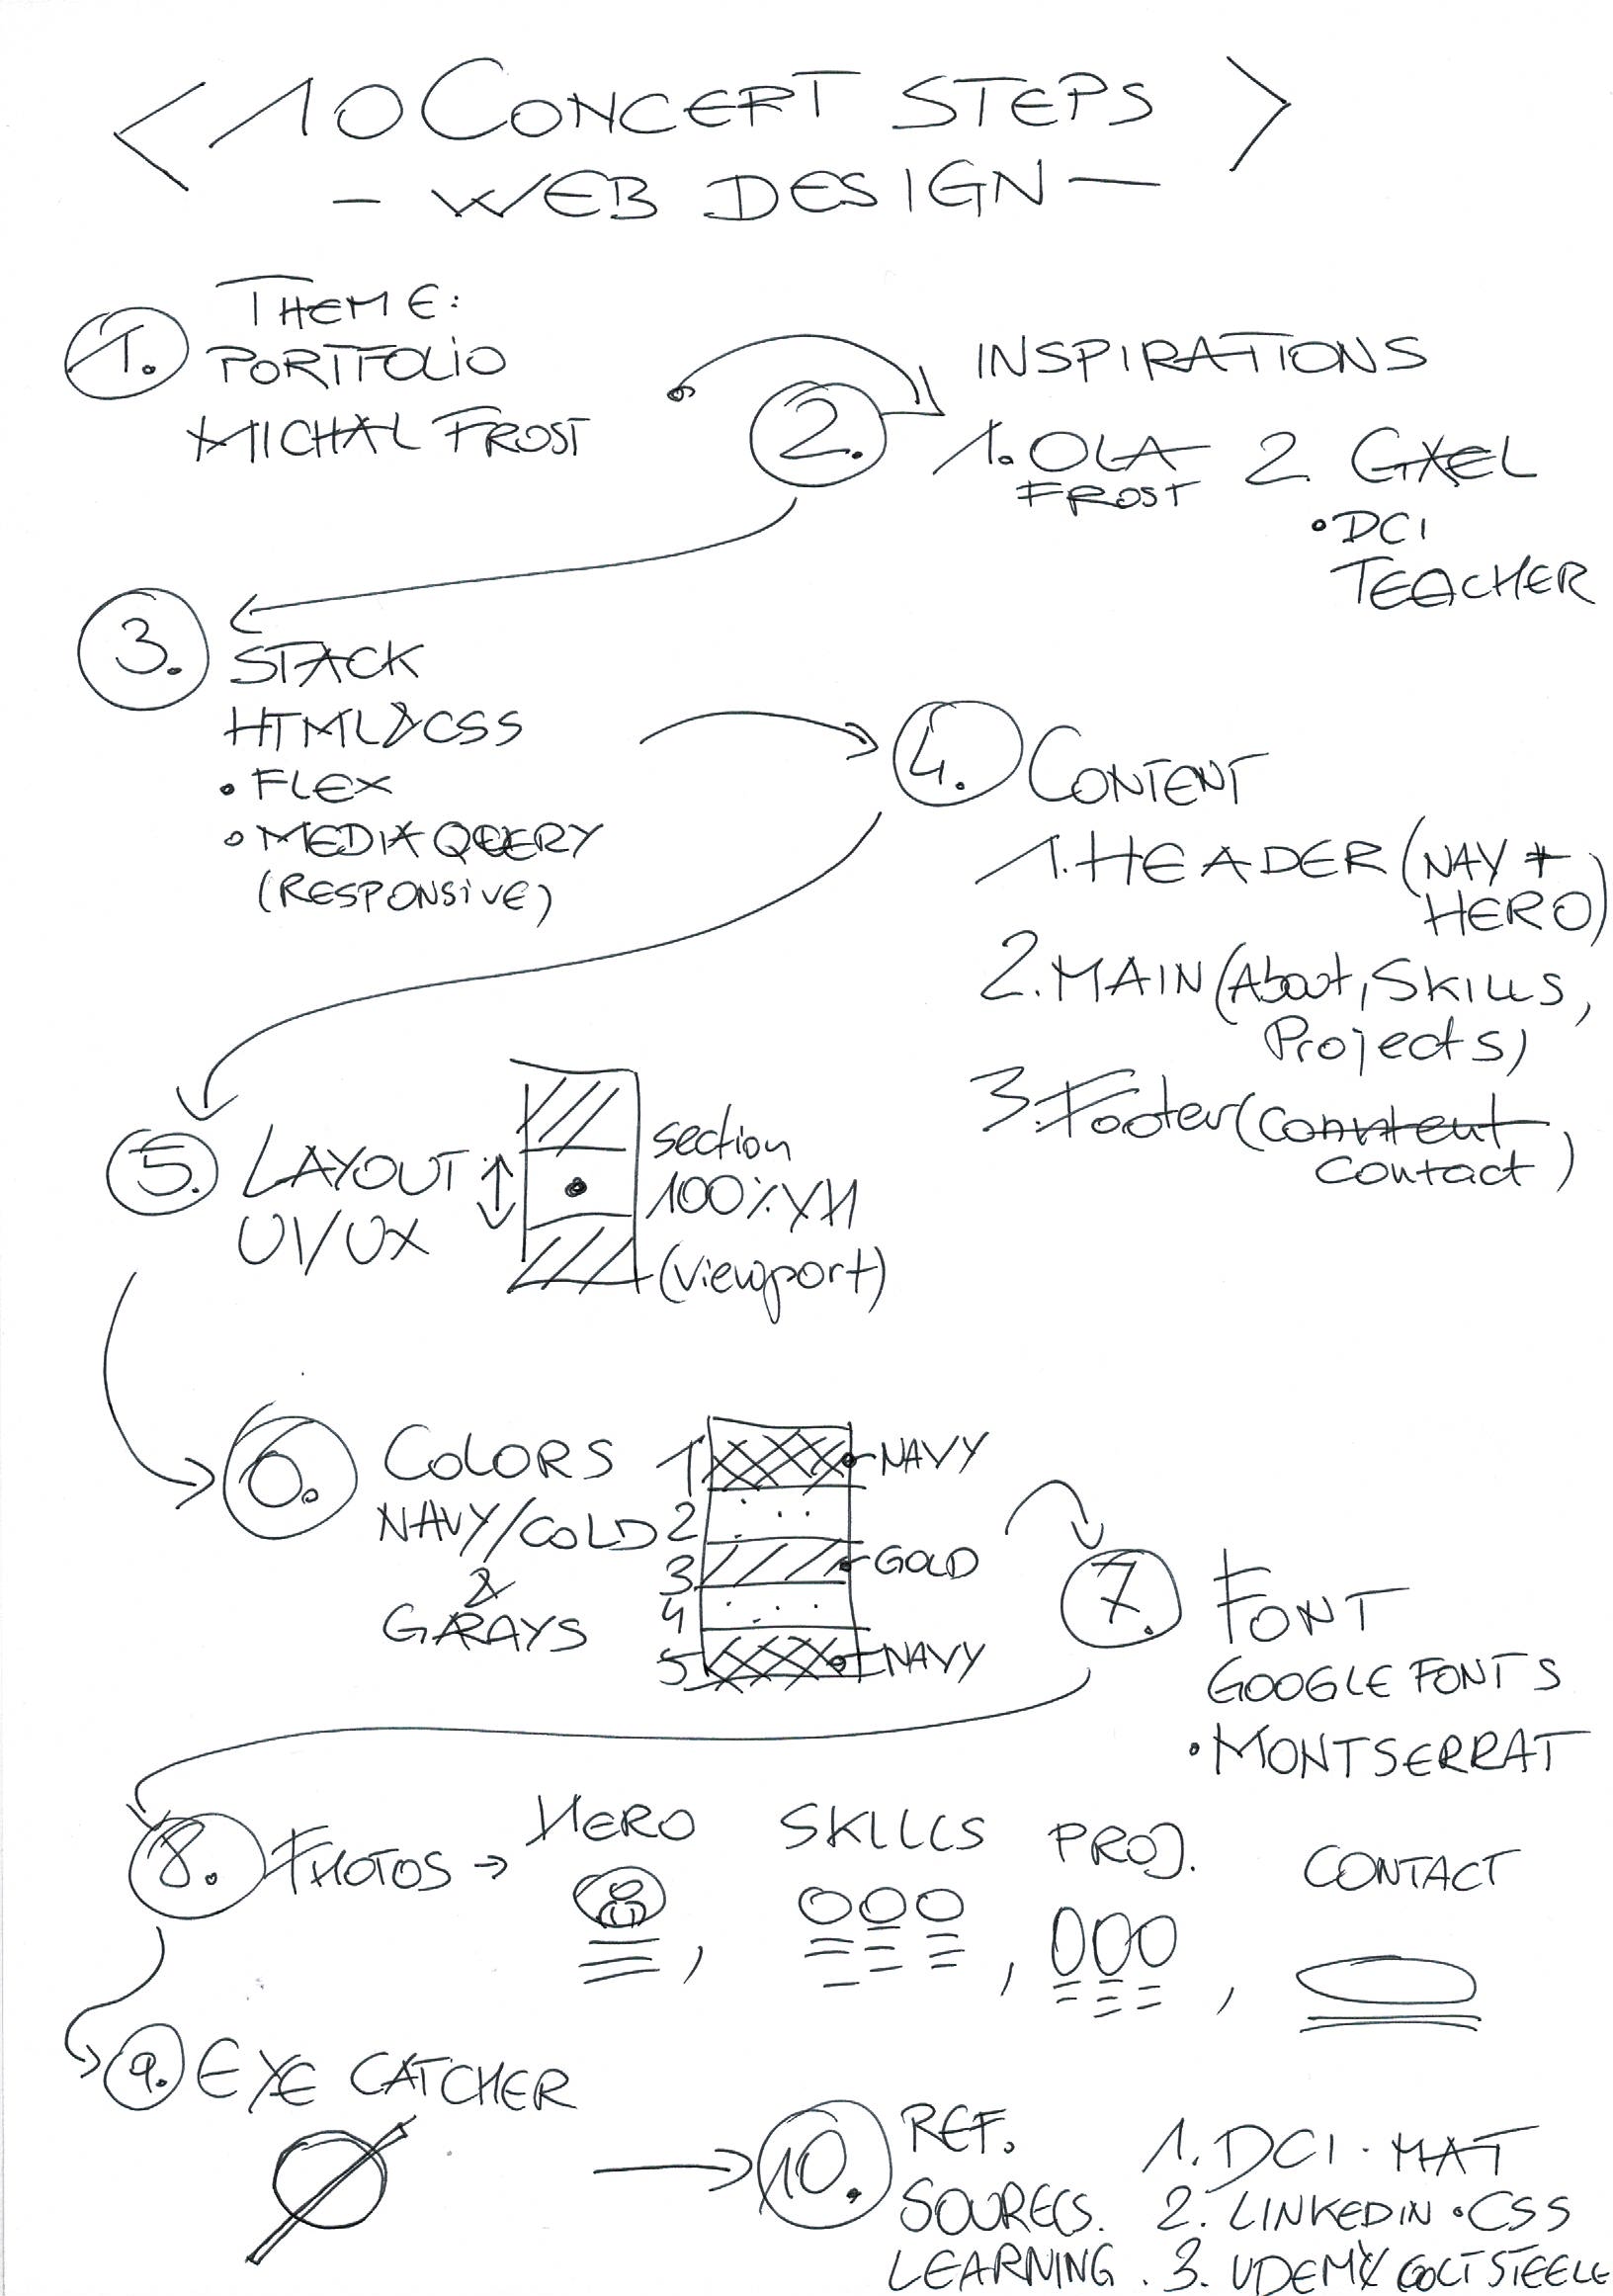 < 10 CONCEPT STEPS >
- WEB DESIGN -
1. THEME:
PORTFOLIO
MICHAL FROST
2. INSPIRATIONS
1. OLA FROST 2. GXEL
• DCI
TEACHER
3. STACK
HTML & CSS
• FLEX
• MEDIA QUERY
(RESPONSIVE)
4. CONTENT
1. HEADER (NAV +
HERO)
2. MAIN (About, SKILLS,
Projects)
3. Footer (
contact)
5. LAYOUT
UI/UX
section
100% VH
(viewport)
6. COLORS
NAVY/GOLD
&
GRAYS
1 NAVY
2
3 GOLD
4
5 NAVY
7. FONT
GOOGLE FONTS
• MONTSERRAT
8. PHOTOS → HERO, SKILLS, PROJ., CONTACT
9. EYE CATCHER
10. REF.
SOURECS.
LEARNING.
1. DCI. MAT
2. LINKEDIN • CSS
3. UDEMY COLT STEELE